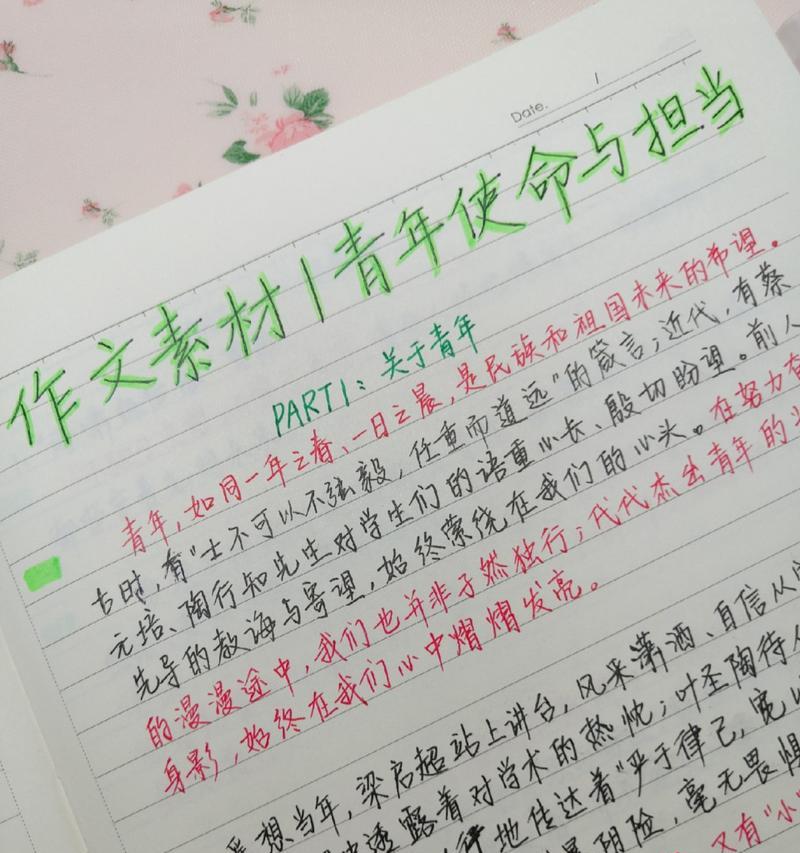 Date. 1
作文素材|青年使命与担当
PART1:关于青年
青年,如同一年之春、一日之晨,是民族和祖国未来的希望。
古时,有"士不可以不弘毅,任重而道远"的箴言;近代,有蔡
元培、陶行知先生对学生们的语重心长、殷切盼望。前人
先导的教诲与寄望,始终萦绕在我们的心头。在努力
的漫漫途中,我们也并非孑然独行;代代杰出青年的
身影,始终在我们心中熠熠发亮。
想当年,梁启超站上讲台,风采潇洒、自信从
透露着对学术的热忱;叶圣陶待
地传达着"严于律己,宽
阴险,毫无畏惧
又有"小"